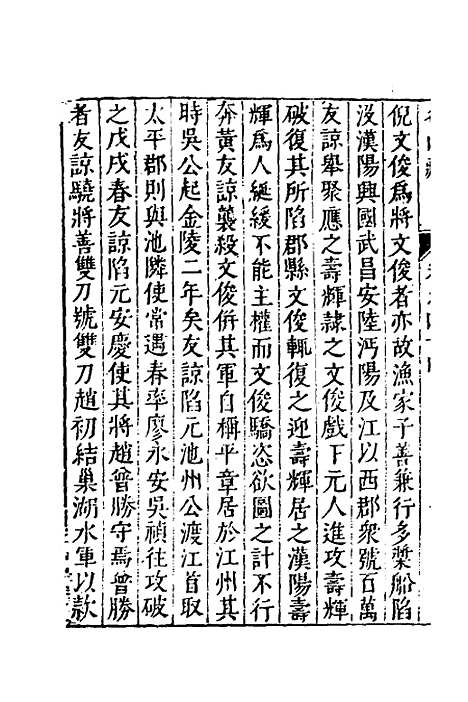 倪文俊爲將文俊者亦故漁家子善兼行多槳船陷
沒漢陽興國武昌安陸沔陽及江以西郡衆號百萬
友諒舉聚應之壽輝隷之文俊戲下元人進攻壽輝
破復其所陷郡縣文俊輒復之迎壽輝居之漢陽壽
輝爲人綎緩不能主權而文俊驕恣欲圖之計不行
奔黃友諒襲殺文俊併其軍自稱平章居於江州其
時吳公起金陵二年矣友諒陷元池州公渡江首取
太平郡則與池隣使常遇春率廖永安吳禎往攻破
之戊戌春友諒陷元安慶使其將趙曾勝守焉曾勝
者友諒驍將善雙刀號雙刀趙初結巢湖水軍以欵